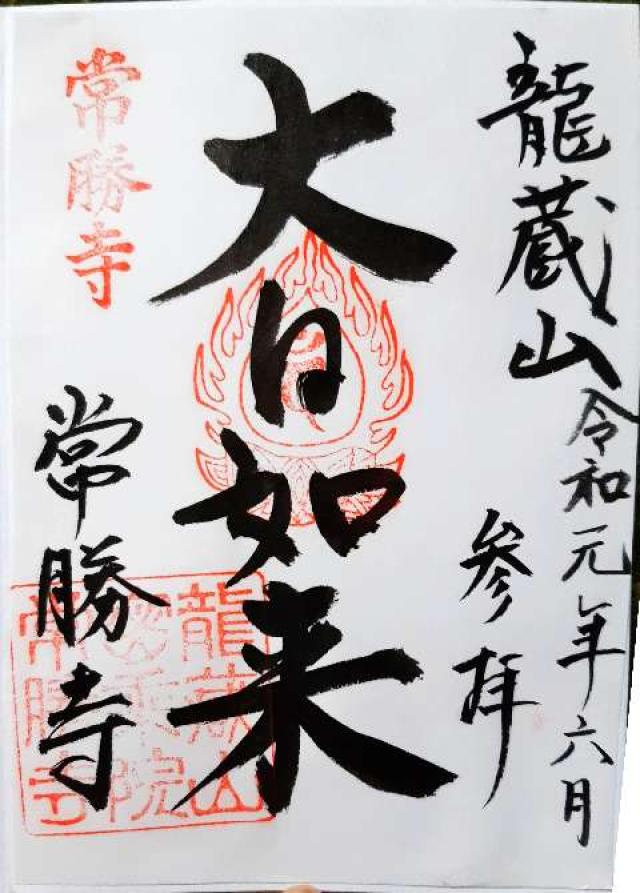 龍蔵山
令和元年六月
参拝
大日如来
常勝寺
常勝寺
龍蔵山
密乗院
常勝寺